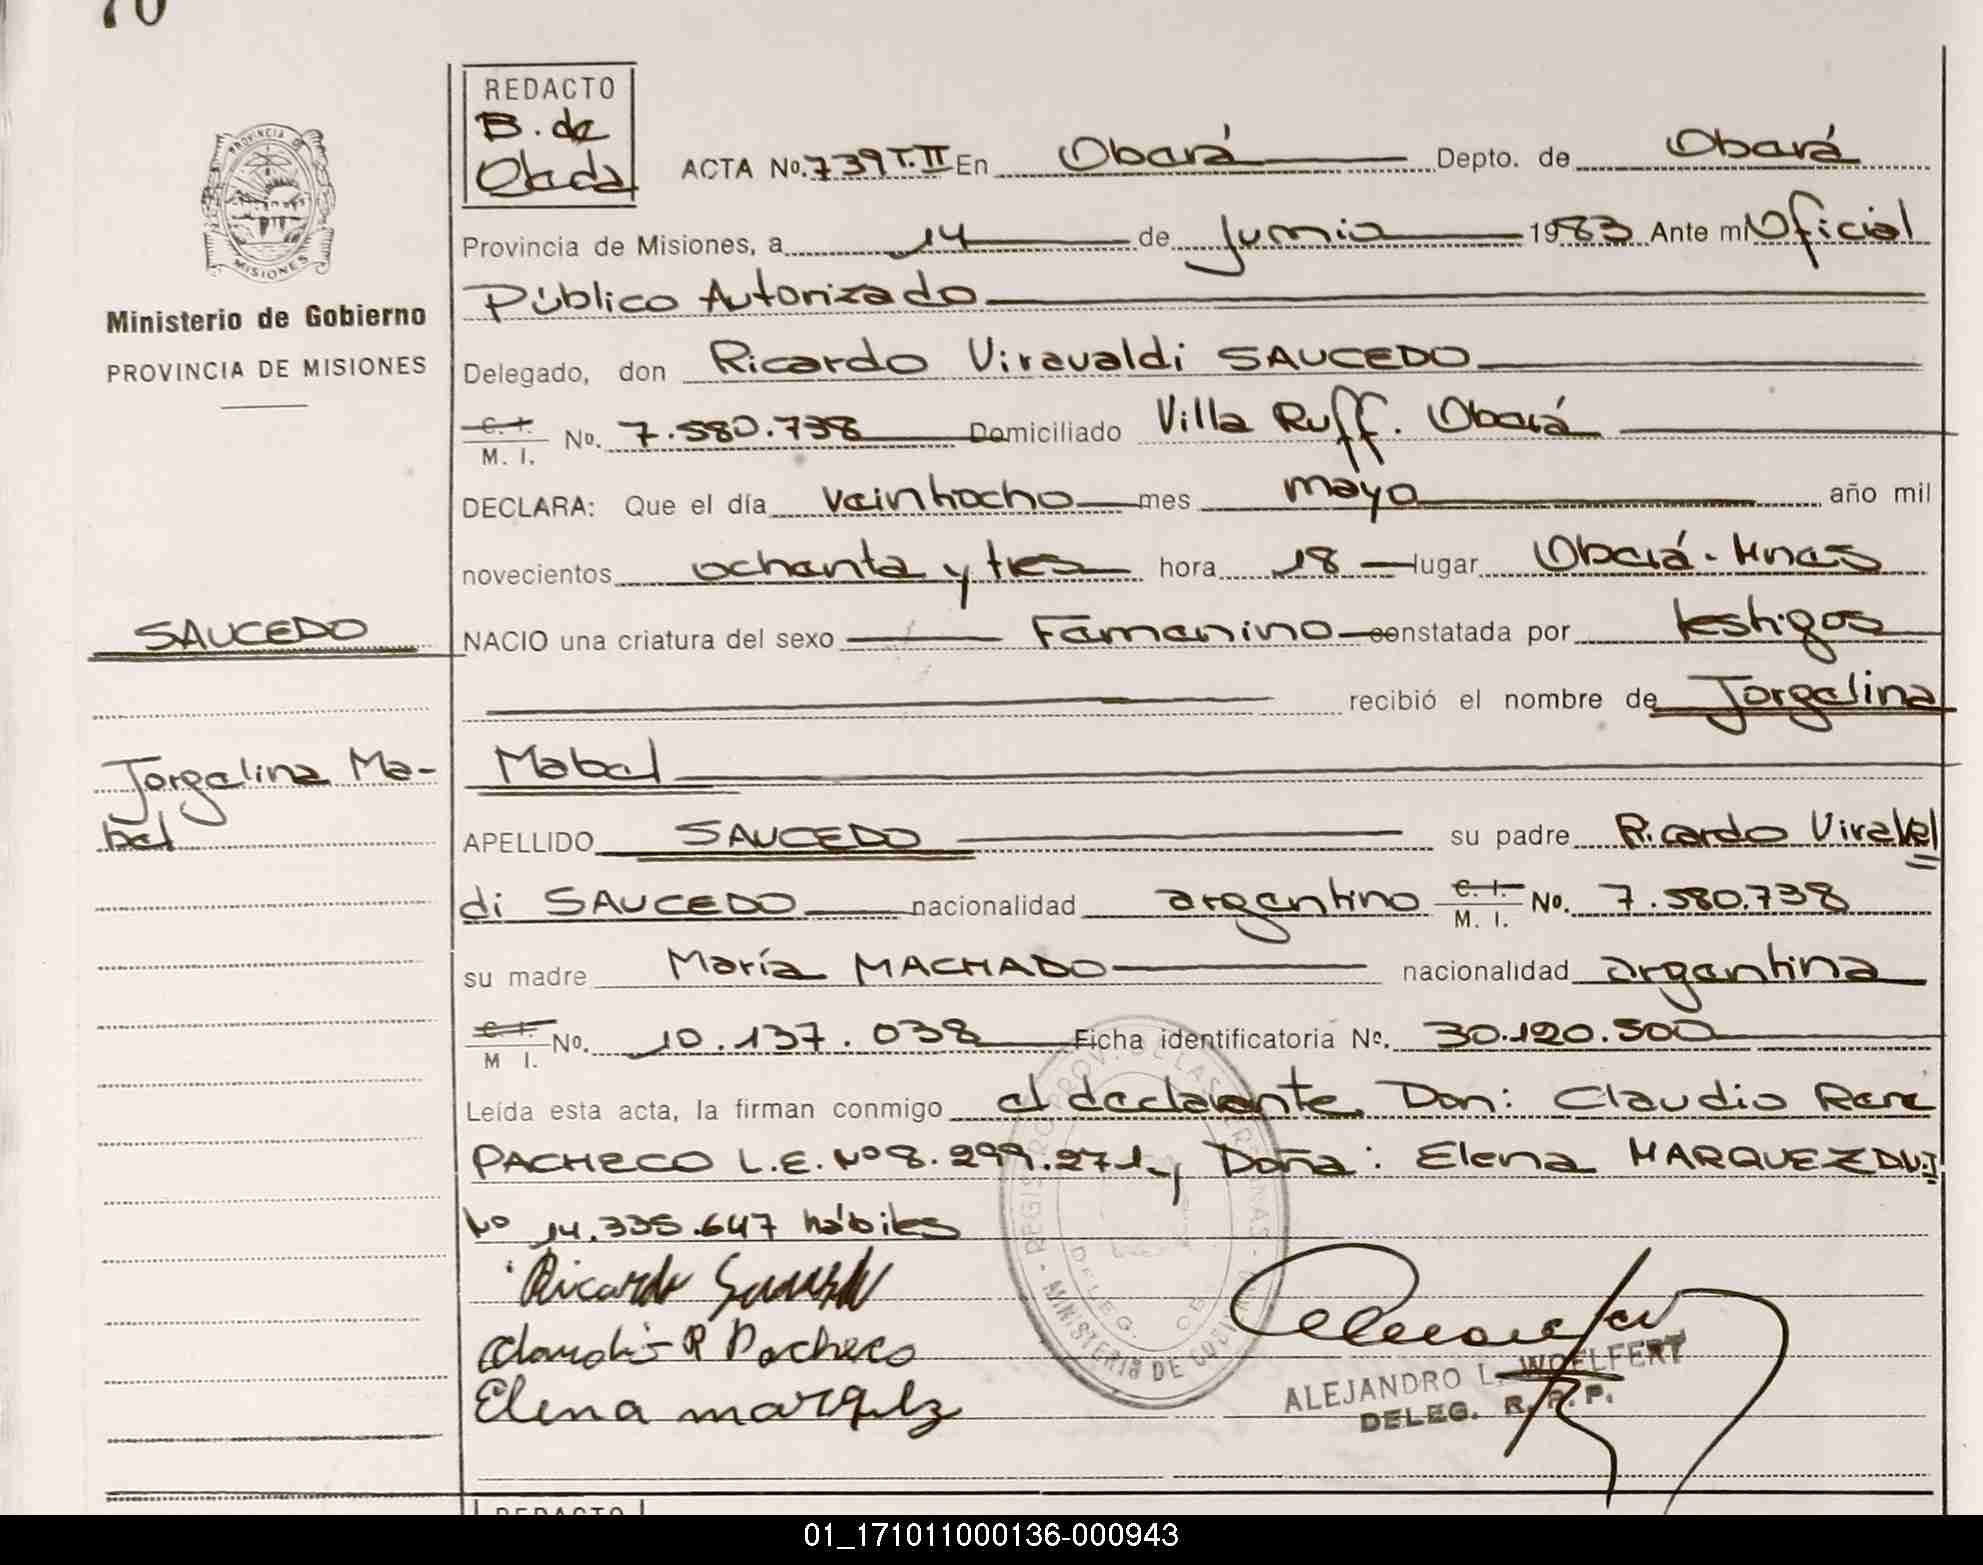 70
REDACTO
B. de
Ojeda
PROVINCIA DE
MISIONES
Ministerio de Gobierno
PROVINCIA DE MISIONES
ACTA No. 739 T.II En Oberá Depto. de Oberá
Provincia de Misiones, a 14 de Junio 1983 Ante mi Oficial
Público Autorizado
Delegado, don Ricardo Viravaldi SAUCEDO
C. I.
M. I. No. 7.580.738 Domiciliado Villa Ruff. Oberá
DECLARA: Que el día veintiocho mes mayo año mil
novecientos ochenta y tres hora 18 lugar Oberá - Mnes
SAUCEDO
NACIO una criatura del sexo Femenino constatada por testigos
recibió el nombre de Jorgelina
Jorgelina Ma-
bel
Mabel
APELLIDO SAUCEDO su padre Ricardo Viraval
di SAUCEDO nacionalidad argentino C. I. M. I. No. 7.580.738
su madre María MACHADO nacionalidad argentina
C. I.
M I. No. 10.137.038 Ficha identificatoria No. 30.120.500
Leída esta acta, la firman conmigo el declarante, Don: Claudio Rene
PACHECO L.E. Nº 8.299.271 y Doña: Elena MARQUEZ D.N.I
Nº 14.335.647 hábiles
Ricardo Saucedo
Claudio R Pacheco
Elena marquez
ALEJANDRO L. WOELFERT
DELEG. R. P. P.
REDACTO
01_171011000136-000943